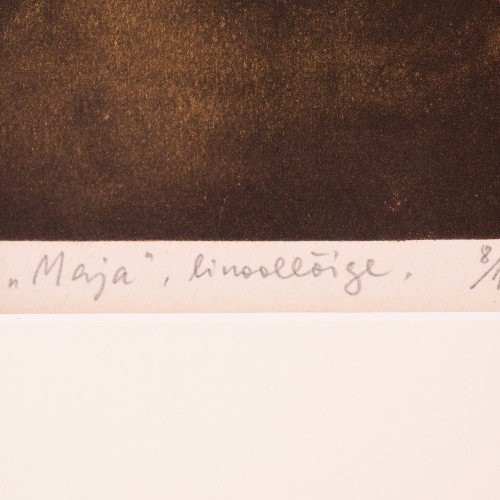 „Maja“, linoollõige. 8/1